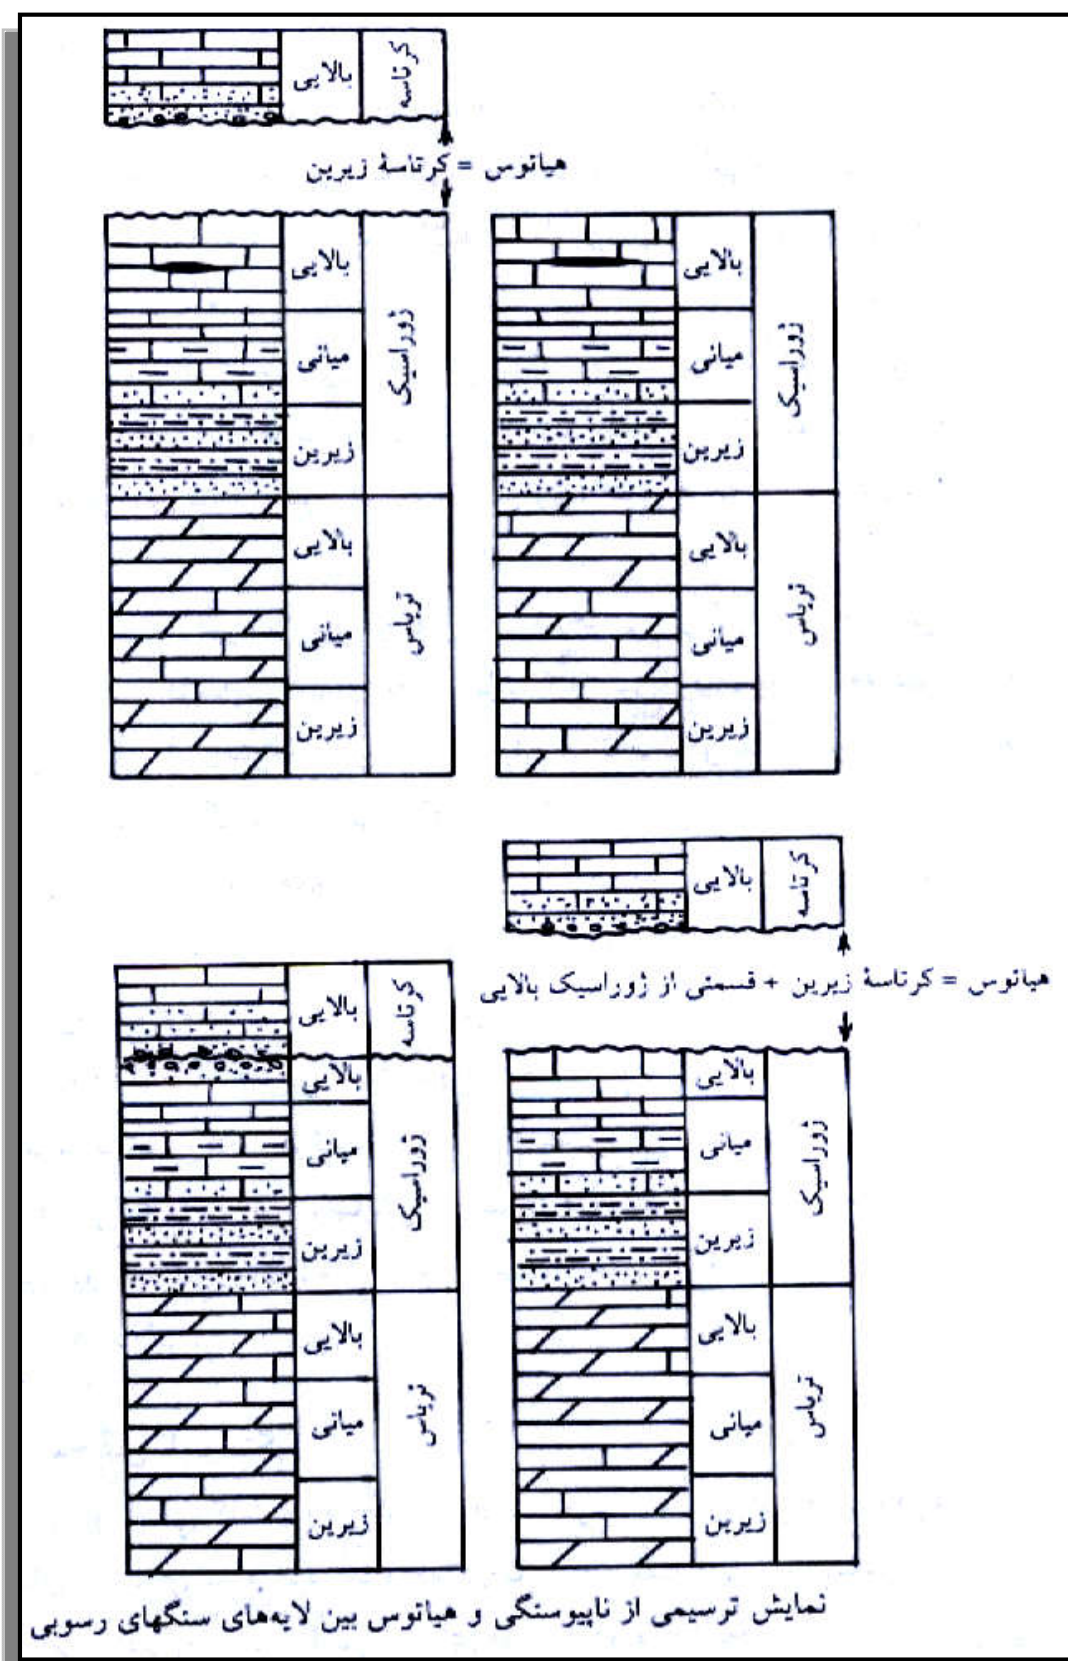 بالایی
کرتاسه
هیاتوس = کرتاسهٔ زیرین
بالایی
میانی
زیرین
ژوراسیک
بالایی
میانی
زیرین
تریاس
بالایی
میانی
زیرین
ژوراسیک
بالایی
میانی
زیرین
تریاس
بالایی
کرتاسه
هیاتوس = کرتاسهٔ زیرین + قسمتی از ژوراسیک بالایی
بالایی
میانی
زیرین
ژوراسیک
بالایی
میانی
زیرین
تریاس
بالایی
کرتاسه
بالایی
میانی
زیرین
ژوراسیک
بالایی
میانی
زیرین
تریاس
نمایش ترسیمی از ناپیوستگی و هیاتوس بین لایه‌های سنگهای رسوبی